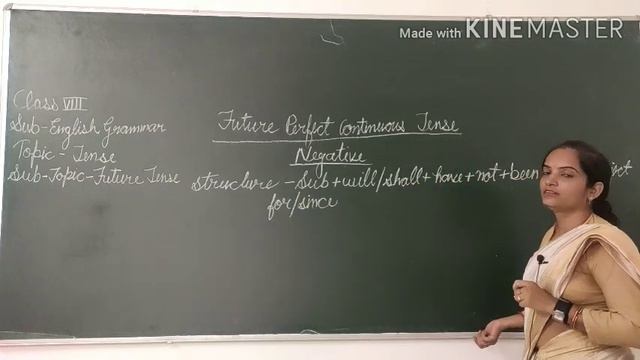 Made with KINEMASTER
Class VIII
Sub-English Grammar
Topic - Tense
Sub-Topic-Future Tense
Future Perfect Continuous Tense
Negative
Structure - Sub+will/shall+have+not+been
for/since